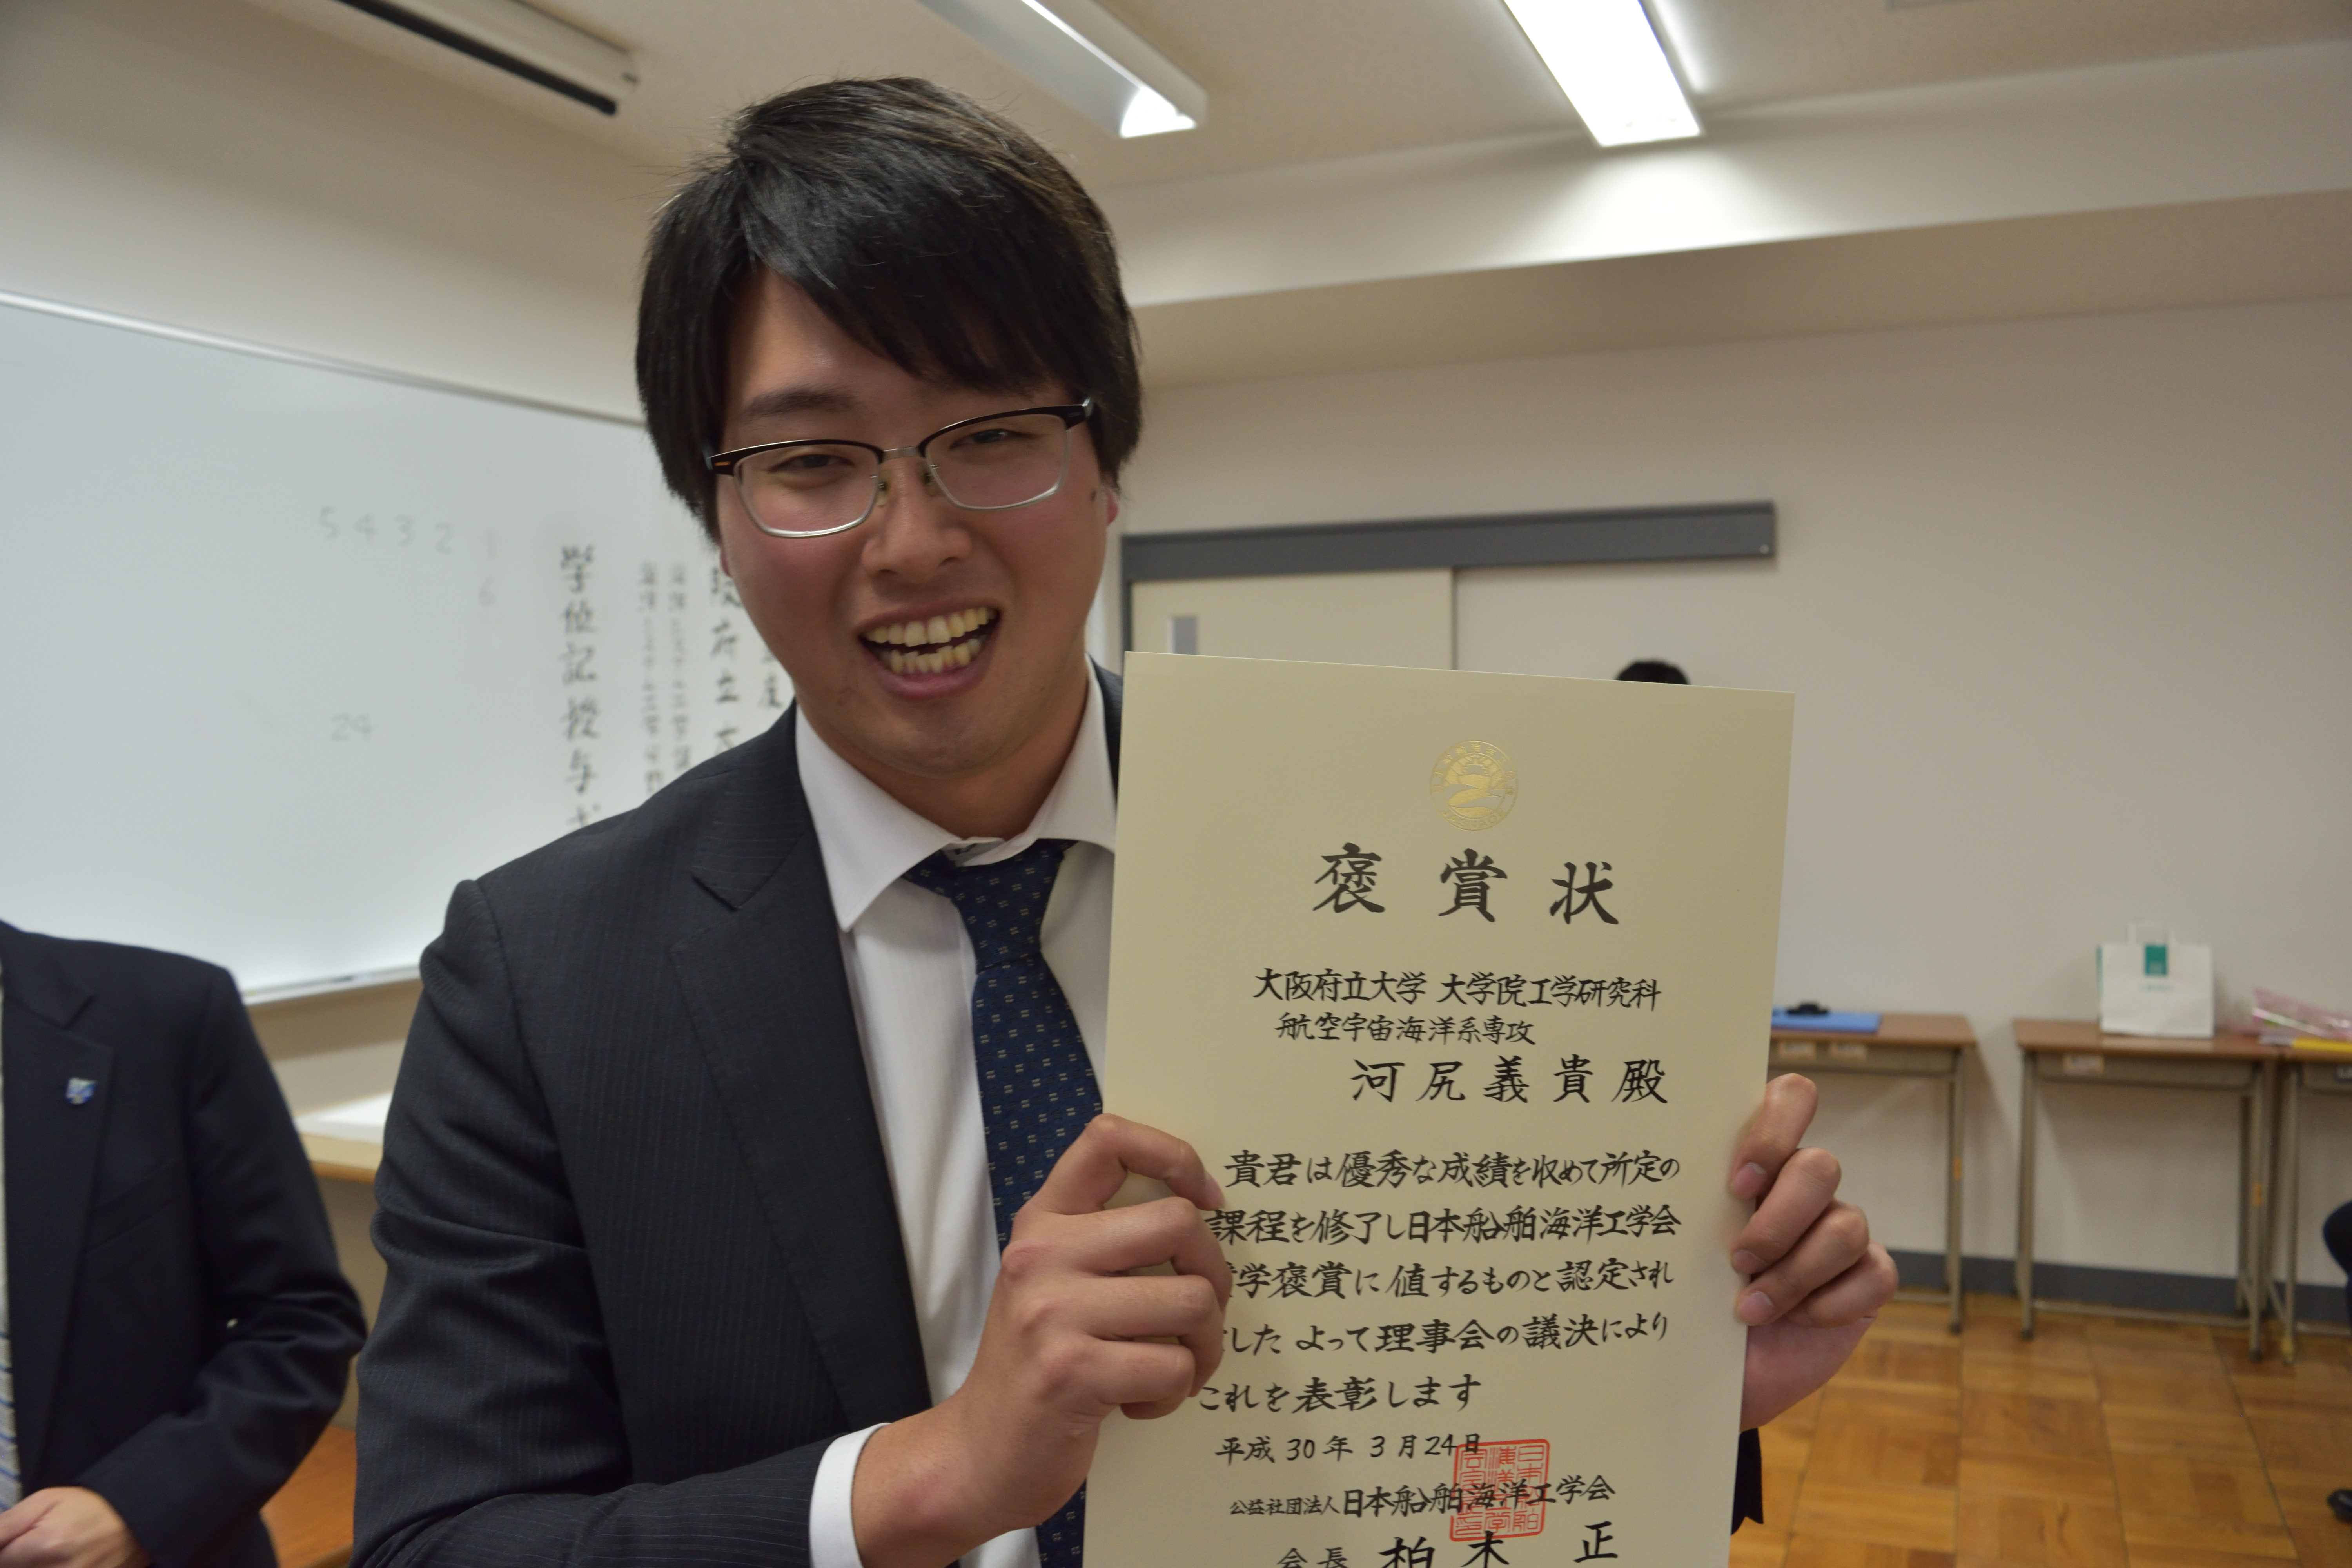 褒賞状
大阪府立大学 大学院工学研究科
航空宇宙海洋系専攻
河尻義貴殿
貴君は優秀な成績を収めて所定の
課程を修了し日本船舶海洋工学会
学褒賞に値するものと認定され
した よって理事会の議決により
これを表彰します
平成30年3月24日
公益社団法人日本船舶海洋工学会
会長 柏木 正
5 4 3 2 1
6
24
府立
学位記授与